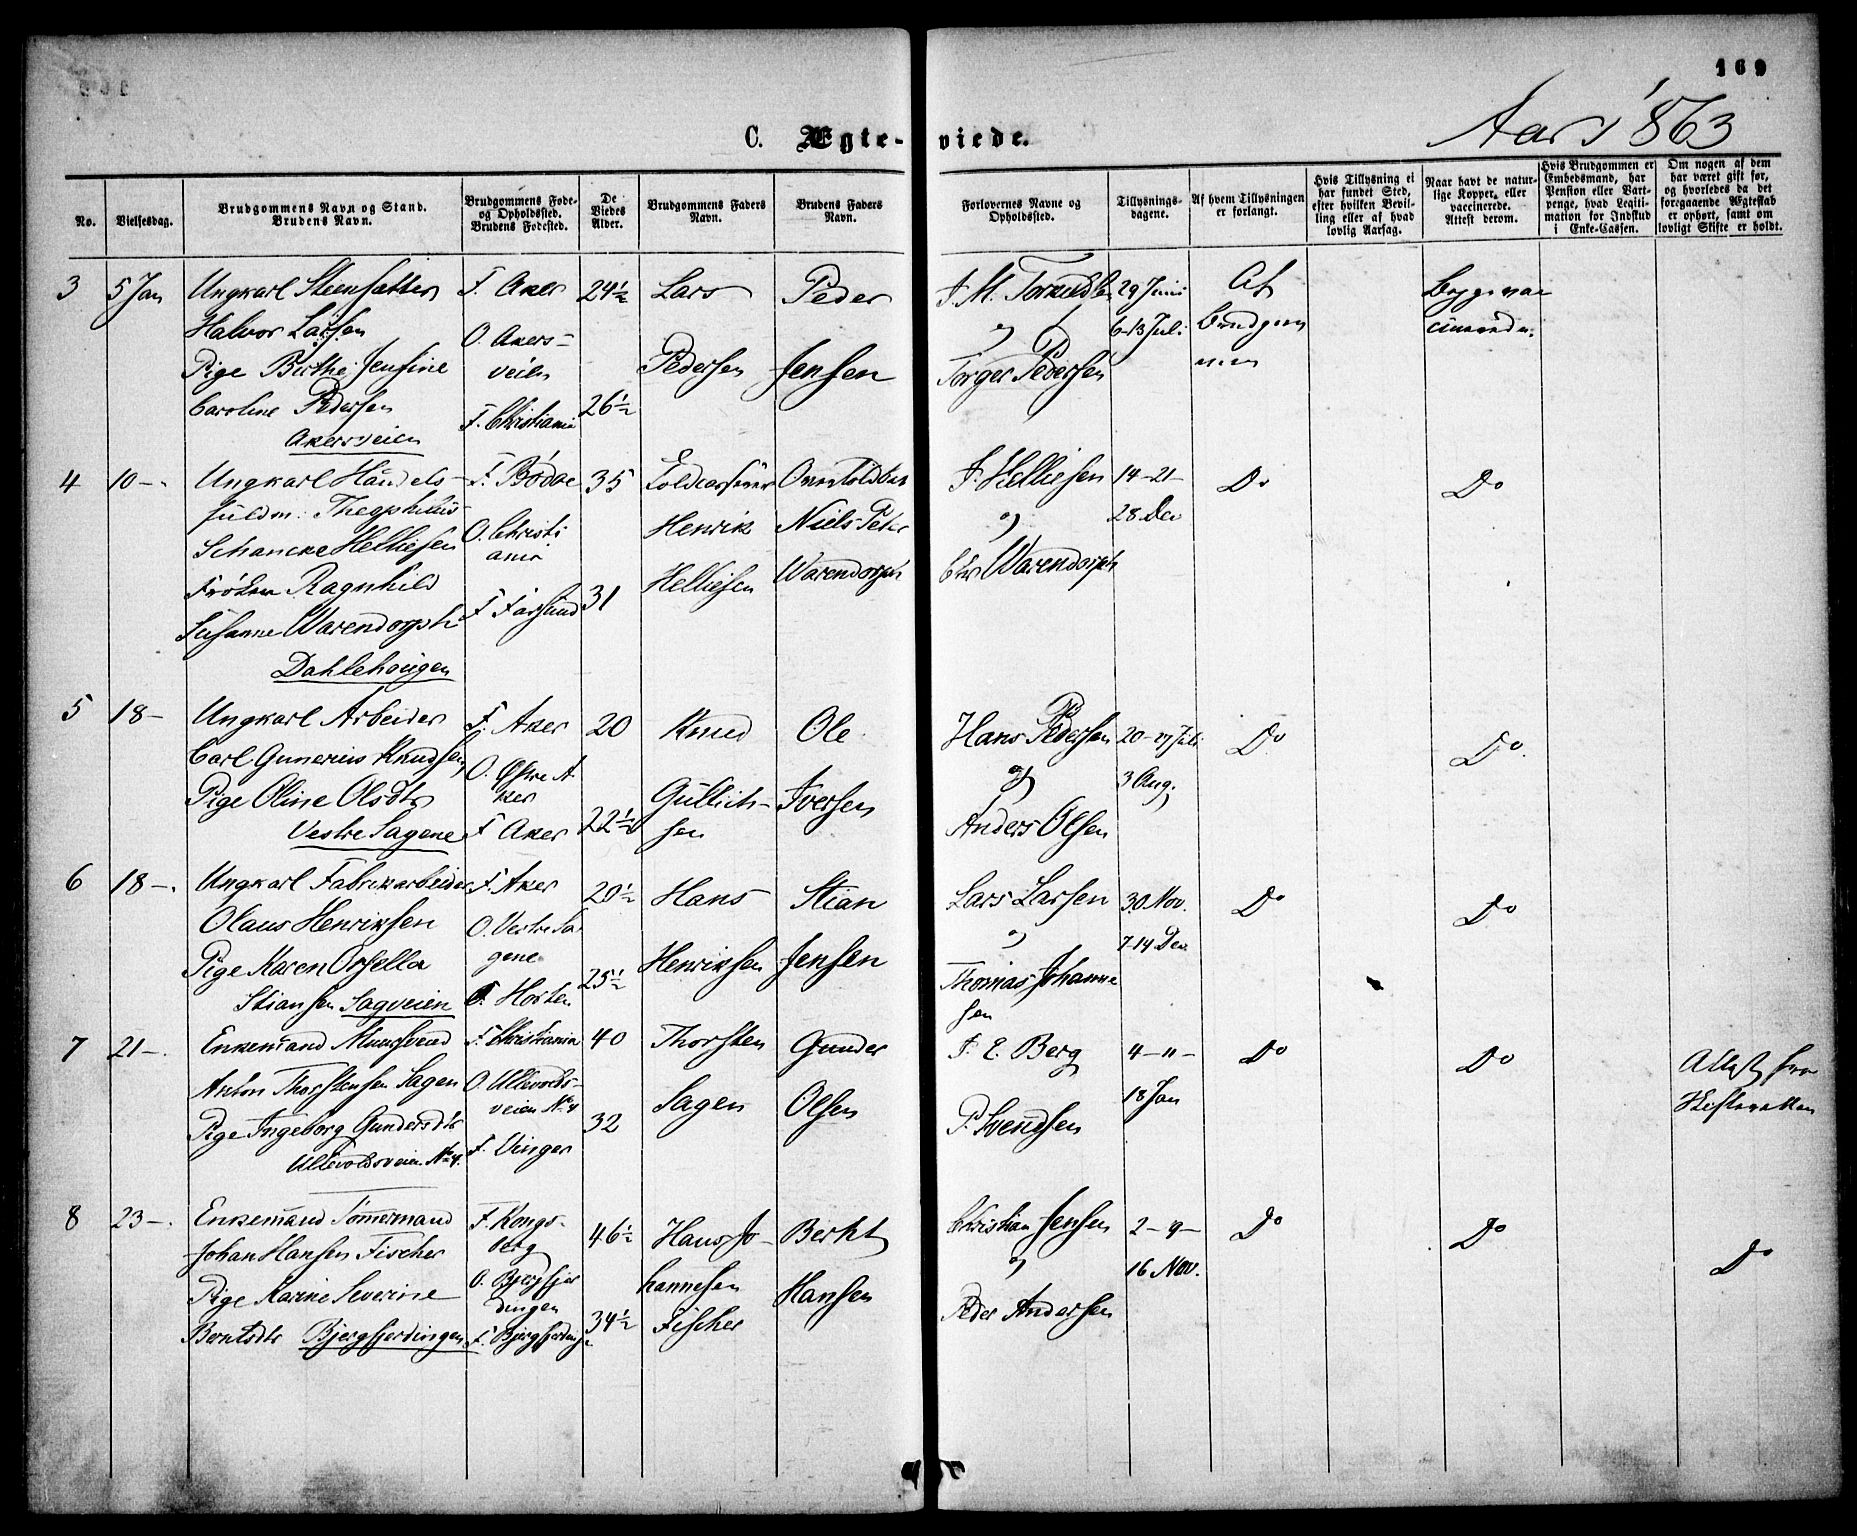 169
Aar 1863
C. Ægte-viede.
No.
Vielsesdag.
Brudgommens Navn og Stand.
Brudens Navn.
Brudgommens Føde- og Opholdsted.
Brudens Fødested.
De Viedes Alder.
Brudgommens Faders Navn.
Brudens Faders Navn.
Forlovernes Navne og Opholdsted.
Tillysnings-dagene.
Af hvem Tillysningen er forlangt.
Hvis Tillysning ei har fundet Sted, efter hvilken Bevilling eller af hvad lovlig Aarsag.
Naar havt de naturlige Kopper, eller vaccinerede. Attest derom.
Hvis Brudgommen er Embedsmand, har Pension eller Vartpenge, hvad Legitimation for Indskud i Enke-Cassen.
Om nogen af dem har været gift før, og hvorledes da det foregaaende Ægteskab er ophørt, samt om lovligt Skifte er holdt.
3 5 Jan Ungkarl Steensætter F. Aker 24½ Lars Peder 29 Juni Af
Halvor Larsen O. Akers- 6-13 Juli
Pige Birthe Jensine veien Pedersen Jensen Torger Pedersen
Caroline Pedersen F. Christiania 26½
Akersveien
4 10 -. Ungkarl Handels- F. Bodøe 35 J. Helliesen 14-21- Do Do
fuldm. Theophilus O. Christi Henrik Niels Peter og 28 Dec
Schancke Helliesen ania
Frøken Ragnhild Helliesen Warendorph Chr Warendorph
Susanne Warendorph F. Farsund 31
Dahlehougen
5 18 - Ungkarl Arbeider F. Aker 20 Knud Ole Hans Pedersen 20-27 Juli Do Do
Carl Gunerius Knudsen O. Østre A og 3 Aug.
Pige Oline Olsdtr ker Gullich- Iversen
Vestre Sagene F. Aker 22½ sen Anders Olsen
6 18 -. Ungkarl Fabrikarbeider F. Aker 20½ Hans Stian Lars Larsen 30 Nov. Do Do
Olaus Henriksen O. Vestre Sa og 7-14 Dec
Pige Karen gene Henriksen Jensen Thomas Johanne
Stiansen Sagveien F. Horten 25½ sen
7 21 -. Enkemand F. Christiania 40 Thorsten Gunder J. E. Berg 4-11- Do Do Attest fra
Anton Thorstensen Sagen O. Ullevolds- 18 Jan Skifteretten
Pige Ingeborg Gundersdtr veien No 4 32 Sagen Olsen P. Svendsen
Ullevoldsveien No 4. F. Vinger
8 23 -. Enkemand Tømermand F. Kongs- 46½ Hans Jo- Berht Christian Jensen 2-9- Do Do Do
Johan Hansen Fischer berg og 16 Nov.
Pige Karine Severine O. Bjergfjer hannesen Hansen
dingen Peder Andersen
Berntsdtr Bjergfjerdingen F. Bjergfjerding 34½ Fischer